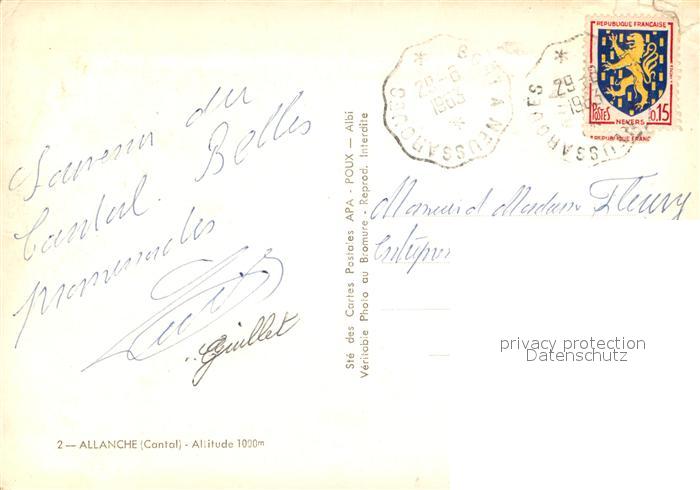 Souvenir du
Cantal. Belles
promenades
Guillet
2 — ALLANCHE (Cantal) - Altitude 1000m
Sté des Cartes Postales APA - POUX - Albi
Véritable Photo au Bromure. Reprod. Interdite
A NEUSSARGUES
29-6
1963
29-6
1963
REPUBLIQUE FRANÇAISE
POSTES
NEVERS
0,15
REPUBLIQUE FRANC
Monsieur et Madame Fleury
privacy protection
Datenschutz